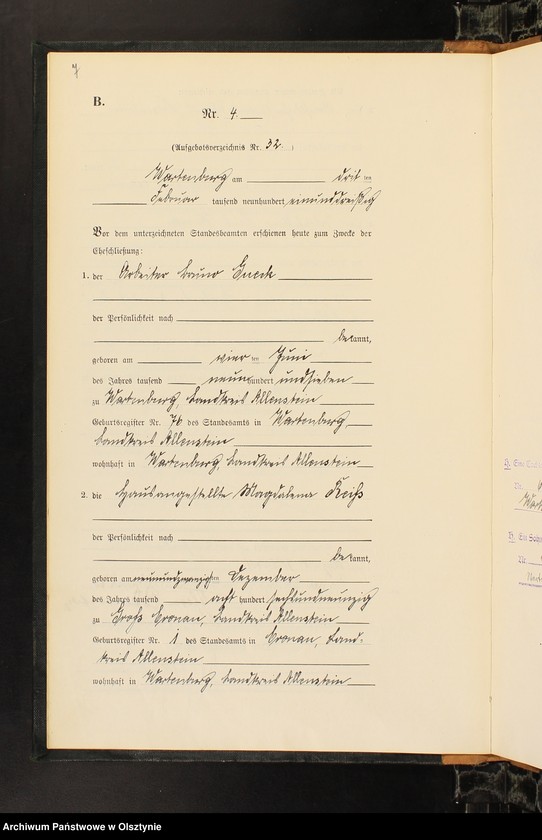 7
B.
Nr. 4
(Aufgebotsverzeichnis Nr. 32.)
Wartenburg am drit ten
Februar tausend neunhundert einunddreißig
Vor dem unterzeichneten Standesbeamten erschienen heute zum Zwecke der
Eheschließung:
1. der Arbeiter Bruno
der Persönlichkeit nach
bekannt,
geboren am vier ten Juni
des Jahres tausend neunhundert undsieben
zu Wartenburg, Landkreis Allenstein
Geburtsregister Nr. 76 des Standesamts in Wartenburg
Landkreis Allenstein
wohnhaft in Wartenburg, Landkreis Allenstein
2. die Hausangestellte Magdalena
der Persönlichkeit nach
bekannt,
geboren am neunundzwanzigsten Dezember
des Jahres tausend acht hundert sechsundneunzig
zu Groß Cronau, Landkreis Allenstein
Geburtsregister Nr. 1 des Standesamts in Cronau, Land-
kreis Allenstein
wohnhaft in Wartenburg, Landkreis Allenstein
Nr.
Nr.
Archiwum Państwowe w Olsztynie